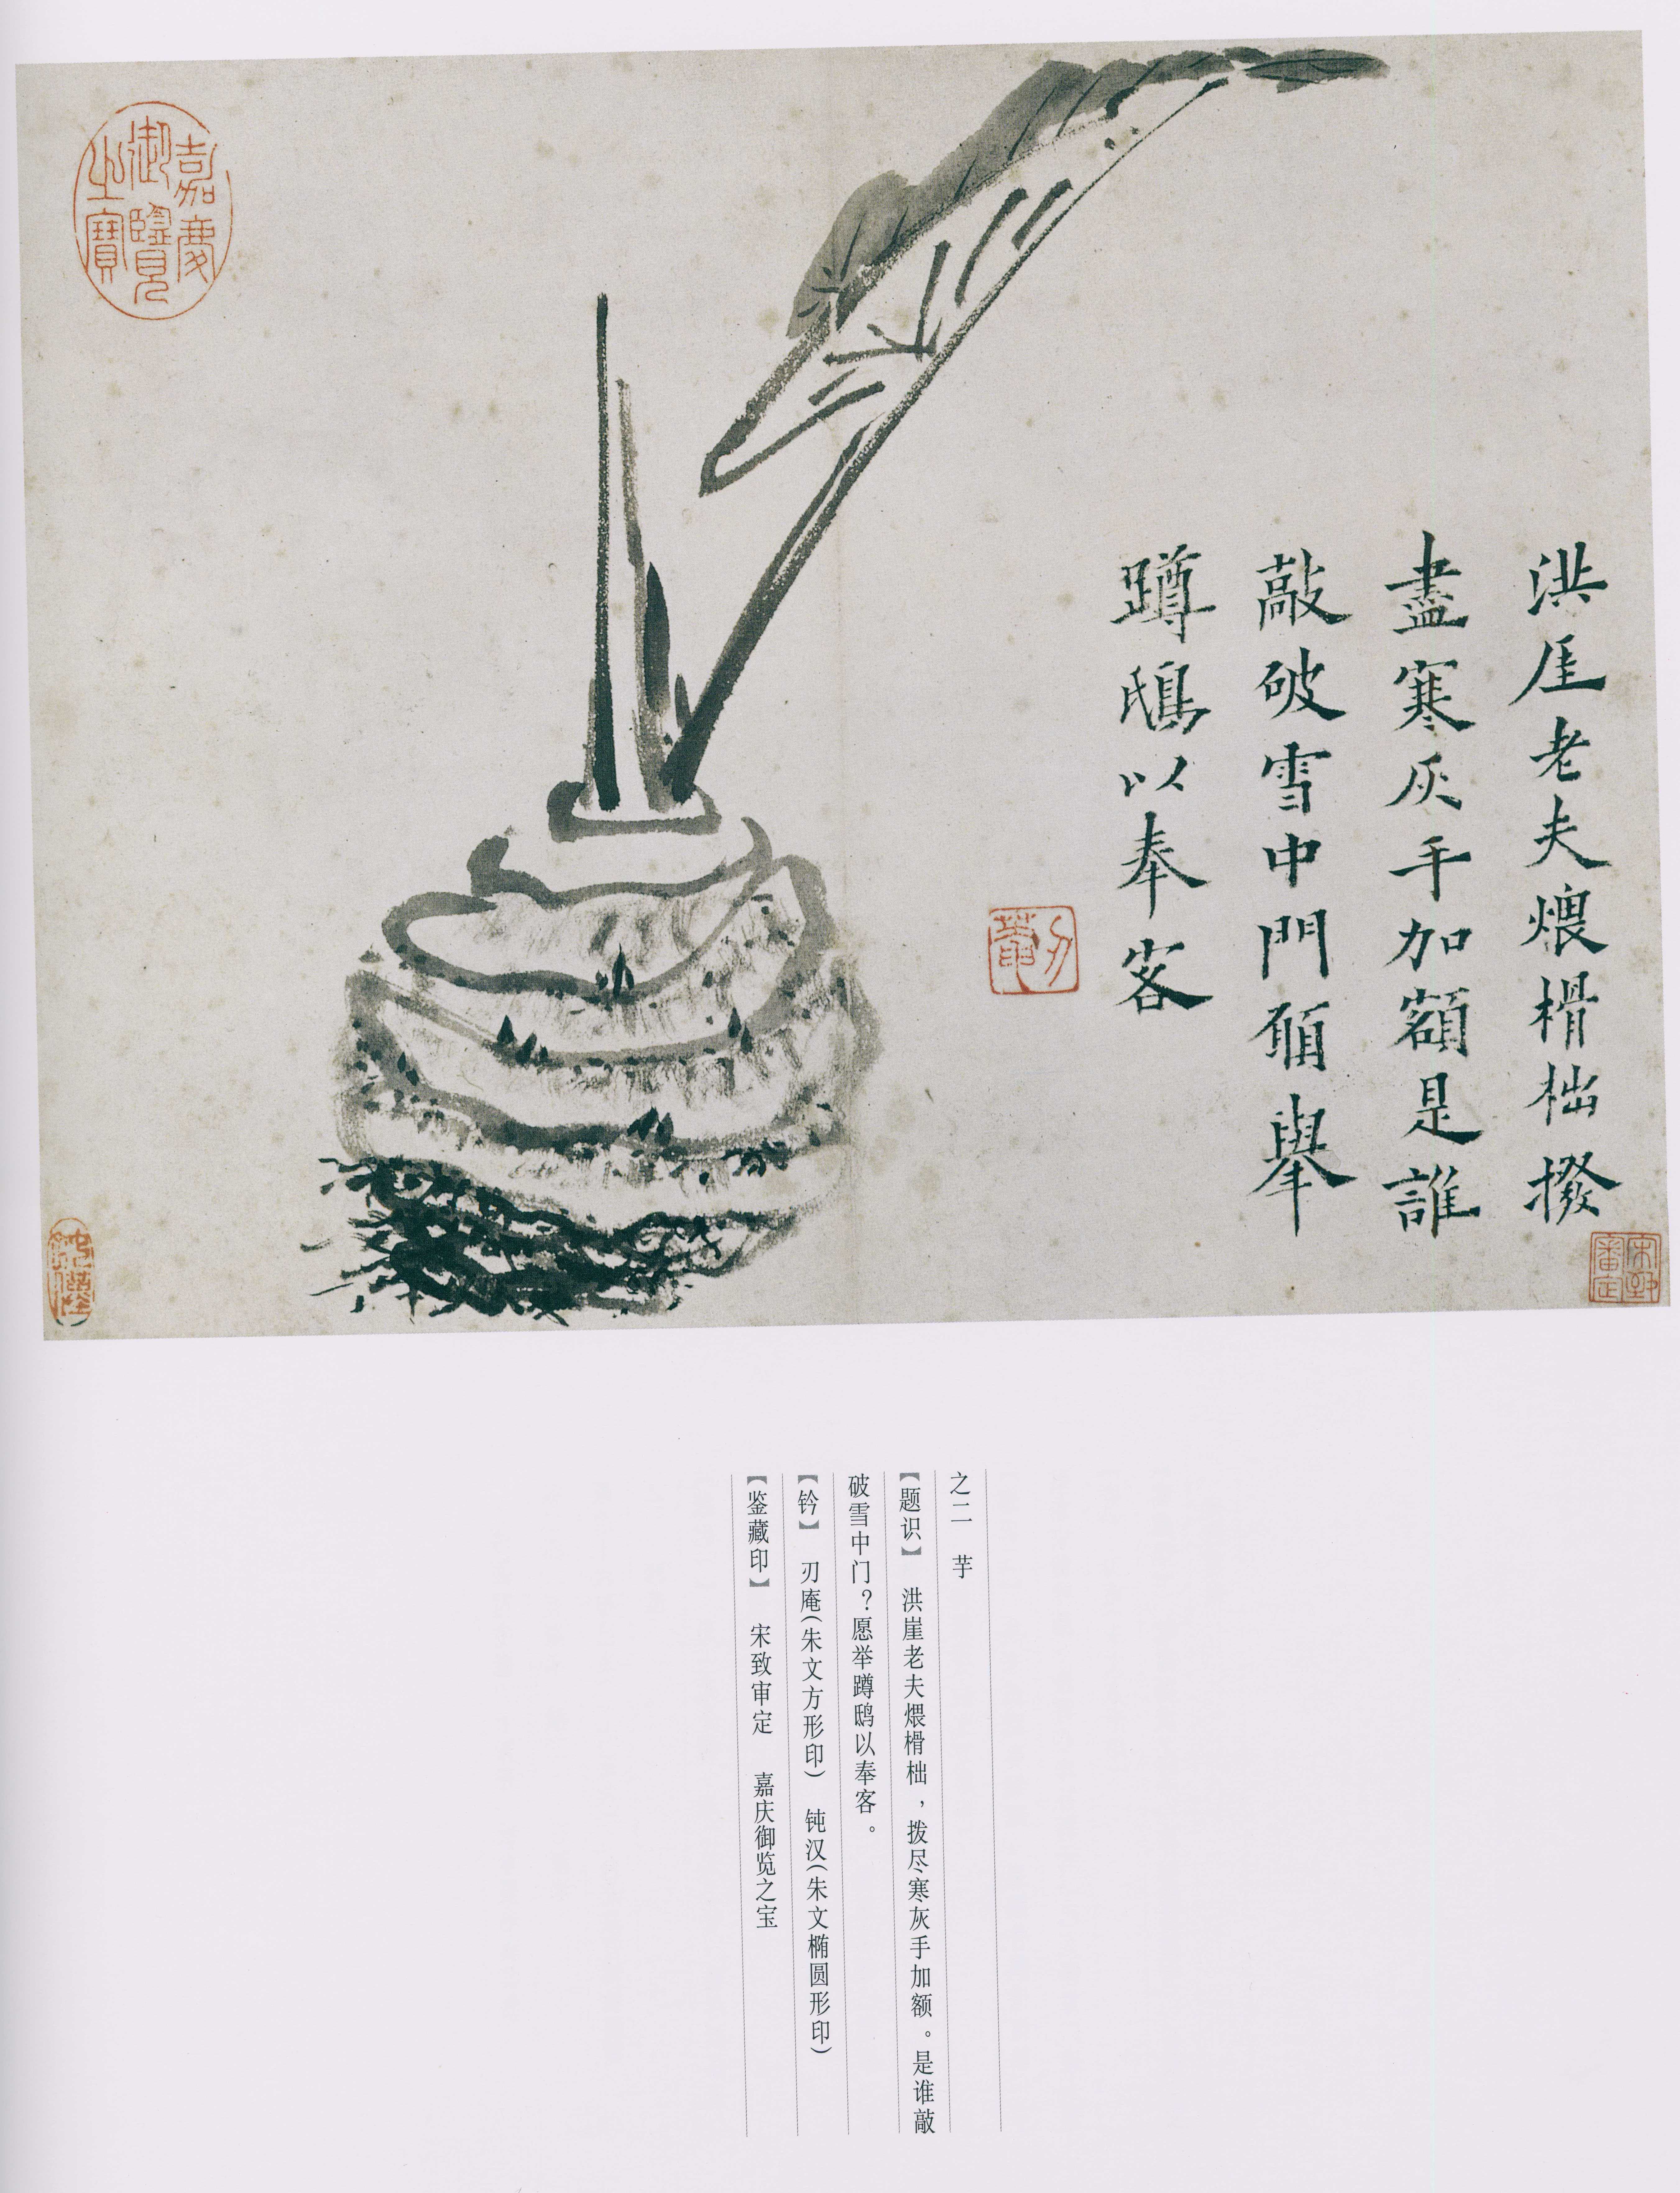 洪厓老夫煨榾柮撥
盡寒灰手加額是誰
敲破雪中門願舉
蹲鴟以奉客
刃菴
嘉慶
御覽
之寶
宋致
審定
之二　芋
【题识】　洪崖老夫煨榾柮，拨尽寒灰手加额。是谁敲
破雪中门？愿举蹲鸱以奉客。
【钤】　刃庵（朱文方形印）　钝汉（朱文椭圆形印）
【鉴藏印】　宋致审定　嘉庆御览之宝